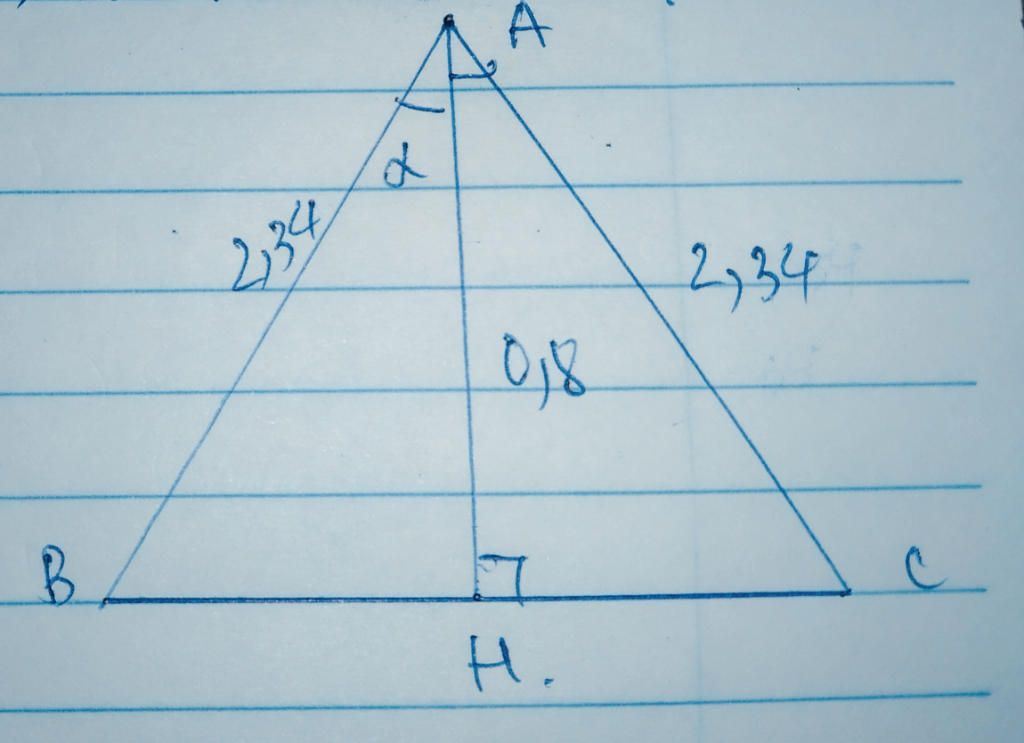 A
α
2,34
2,34
0,8
B
C
H.